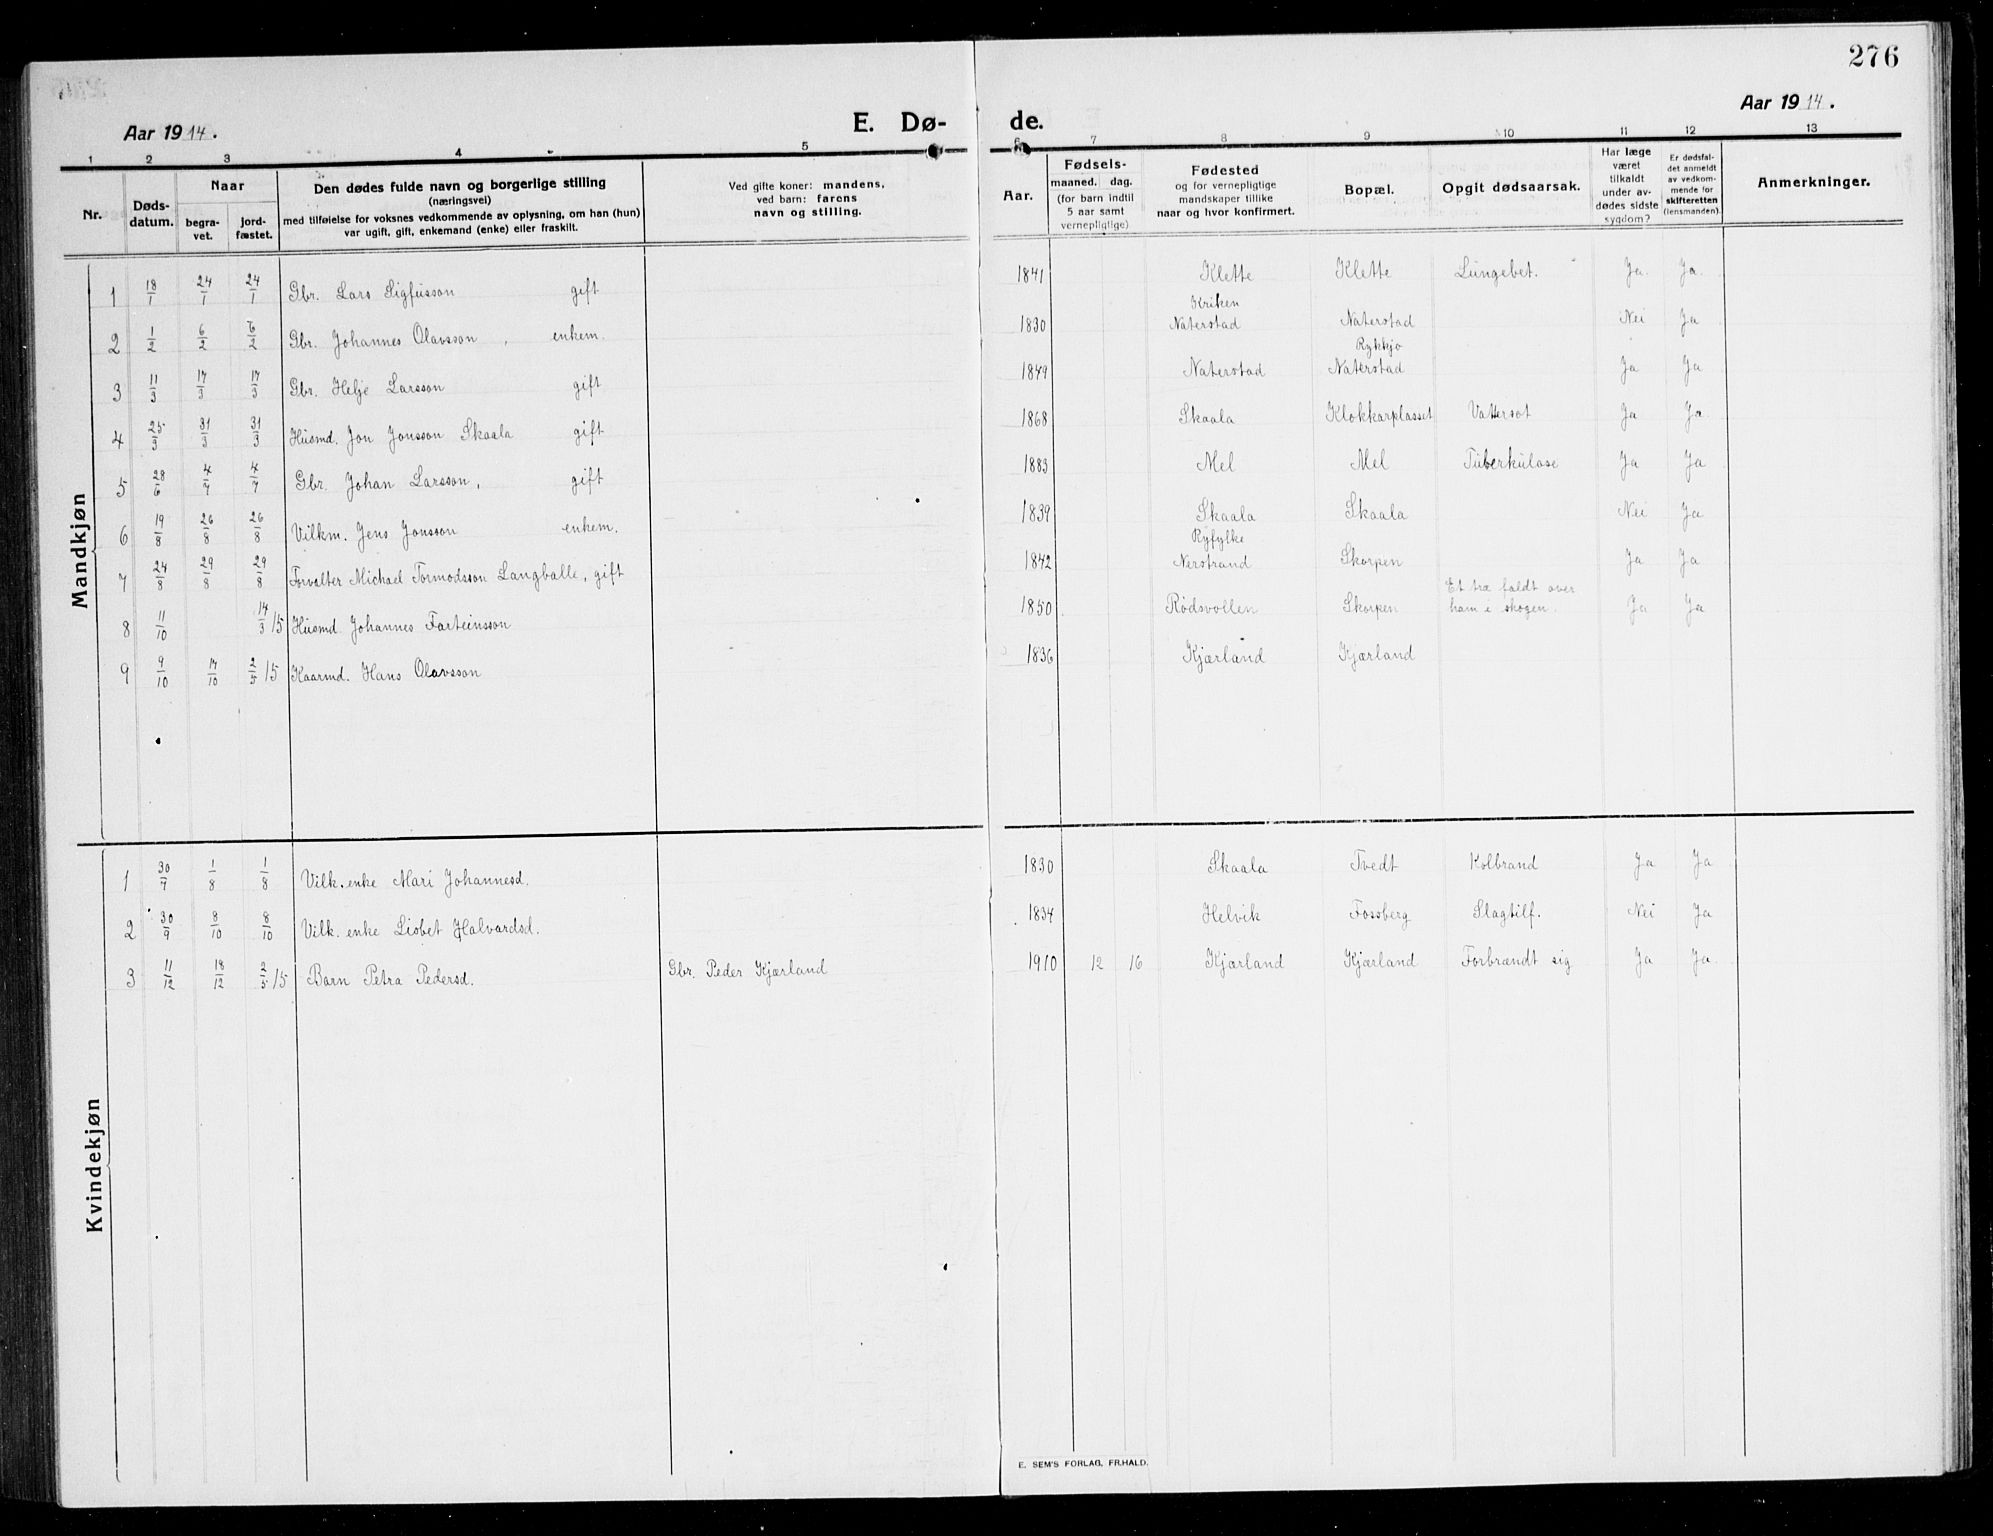 276
Aar 1914.
E. Dø-
de.
Aar 1914.
1 2 3 4 5 6 7 8 9 10 11 12 13
Nr.
Døds-
datum.
Naar
begra-
vet.
jord-
fæstet.
Den dødes fulde navn og borgerlige stilling
(næringsvei)
med tilføielse for voksnes vedkommende av oplysning, om han (hun)
var ugift, gift, enkemand (enke) eller fraskilt.
Ved gifte koner: mandens,
ved barn: farens
navn og stilling.
Aar.
Fødsels-
maaned. dag.
(for barn indtil
5 aar samt
vernepligtige)
Fødested
og for vernepligtige
mandskaper tillike
naar og hvor konfirmert.
Bopæl.
Opgit dødsaarsak.
Har læge
været
tilkaldt
under av-
dødes sidste
sygdom?
Er dødsfal-
det anmeldt
av vedkom-
mende for
skifteretten
(lensmanden).
Anmerkninger.
Mandkjøn
1 18/1 24/1 24/1 Gbr. Lars Sigfusson gift 1841 Klette Klette Lungebet. Ja Ja
2 1/2 6/2 6/2 Gbr. Johannes Olavsson, enkem. 1830 Kriken Naterstad Naterstad Nei Ja
3 11/3 17/3 17/3 Gbr. Helje Larsson gift 1849 Naterstad Rykkjo Naterstad Ja Ja
4 25/3 31/3 31/3 Husmd. Jon Jonsson Skaala gift 1868 Skaala Klokkarplasset Vattersot Ja Ja
5 28/6 4/7 4/7 Gbr. Johan Larsson, gift 1883 Mel Mel Tuberkulose Ja Ja
6 19/8 26/8 26/8 Vilkm. Jens Jonsson enkem. 1839 Skaala Skaala Nei Ja
7 24/8 29/8 29/8 Forvalter Michael Tormodsson Langballe, gift 1842 Ryfylke Nerstrand Skorpen Ja Ja
8 11/10 14/3 15 Husmd. Johannes Farteinsson 1850 Rødsvollen Skorpen Et træ faldt over ham i skogen. Ja Ja
9 9/10 14/10 2/5 15 Kaarmd. Hans Olavsson 1836 Kjærland Kjærland
Kvindekjøn
1 30/7 1/8 1/8 Vilk. enke Mari Johannesd. 1830 Skaala Tvedt Kolbrand Ja Ja
2 30/9 8/10 8/10 Vilk. enke Lisbet Halvardsd. 1834 Helvik Fossberg Slagtilf. Nei Ja
3 11/12 18/12 2/5 15 Barn Petra Pedersd. Gbr. Peder Kjærland 1910 12 16 Kjærland Kjærland Forbrændt sig Ja Ja
E. SEM'S FORLAG, FR.HALD.